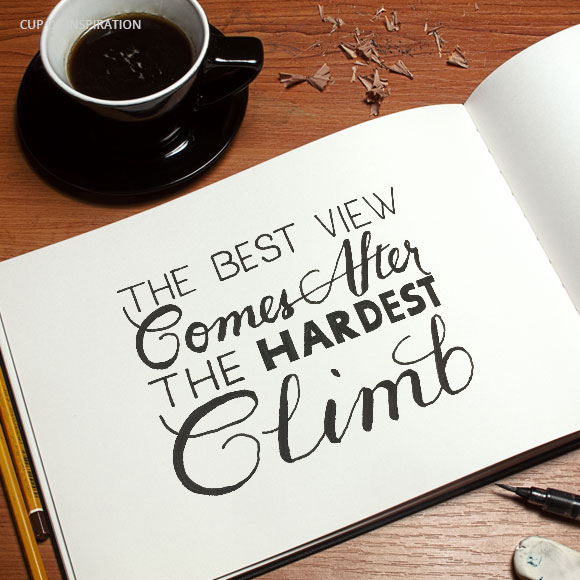 CUP OF INSPIRATION
THE BEST VIEW
Comes After
THE HARDEST
Climb